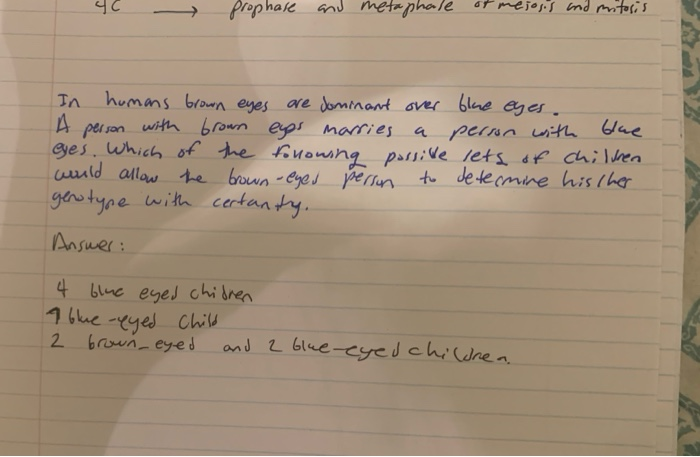 4C → prophase and metaphase of meiosis and mitosis
In humans brown eyes are dominant over blue eyes.
A person with brown eyes marries a person with blue
eyes. Which of the following possible sets of children
would allow the brown-eyed person to determine his/her
genotype with certanty.
Answer:
4 blue eyed children
1 blue-eyed child
2 brown-eyed and 2 blue-eyed children.